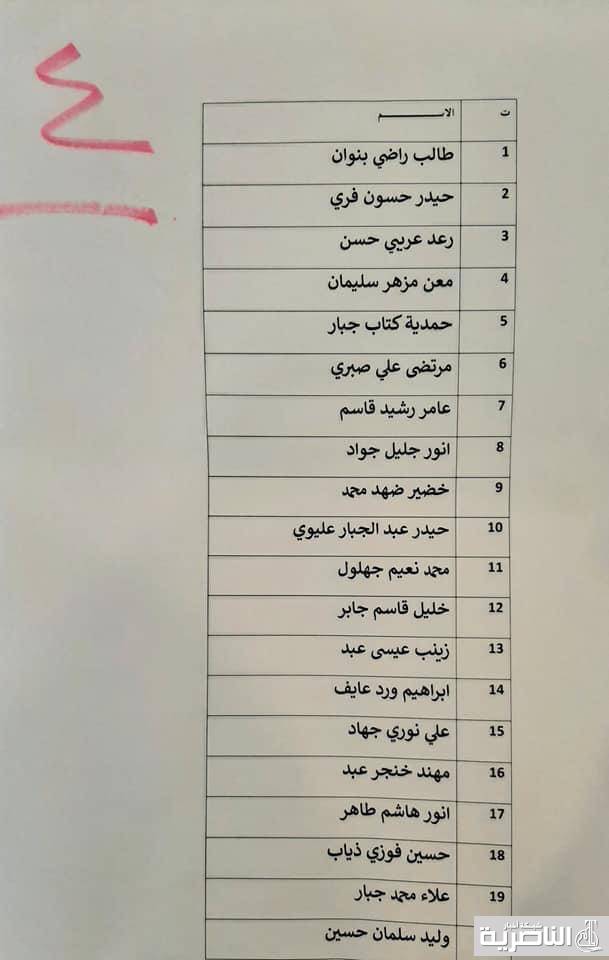 ٤
ت الاســـــم
1 طالب راضي بنوان
2 حيدر حسون فري
3 رعد عريبي حسن
4 معن مزهر سليمان
5 حمدية كتاب جبار
6 مرتضى علي صبري
7 عامر رشيد قاسم
8 انور جليل جواد
9 خضير ضهد محمد
10 حيدر عبد الجبار عليوي
11 محمد نعيم جهلول
12 خليل قاسم جابر
13 زينب عيسى عبد
14 ابراهيم ورد عايف
15 علي نوري جهاد
16 مهند خنجر عبد
17 انور هاشم طاهر
18 حسين فوزي ذياب
19 علاء محمد جبار
وليد سلمان حسين
شبكة أخبار
الناصرية